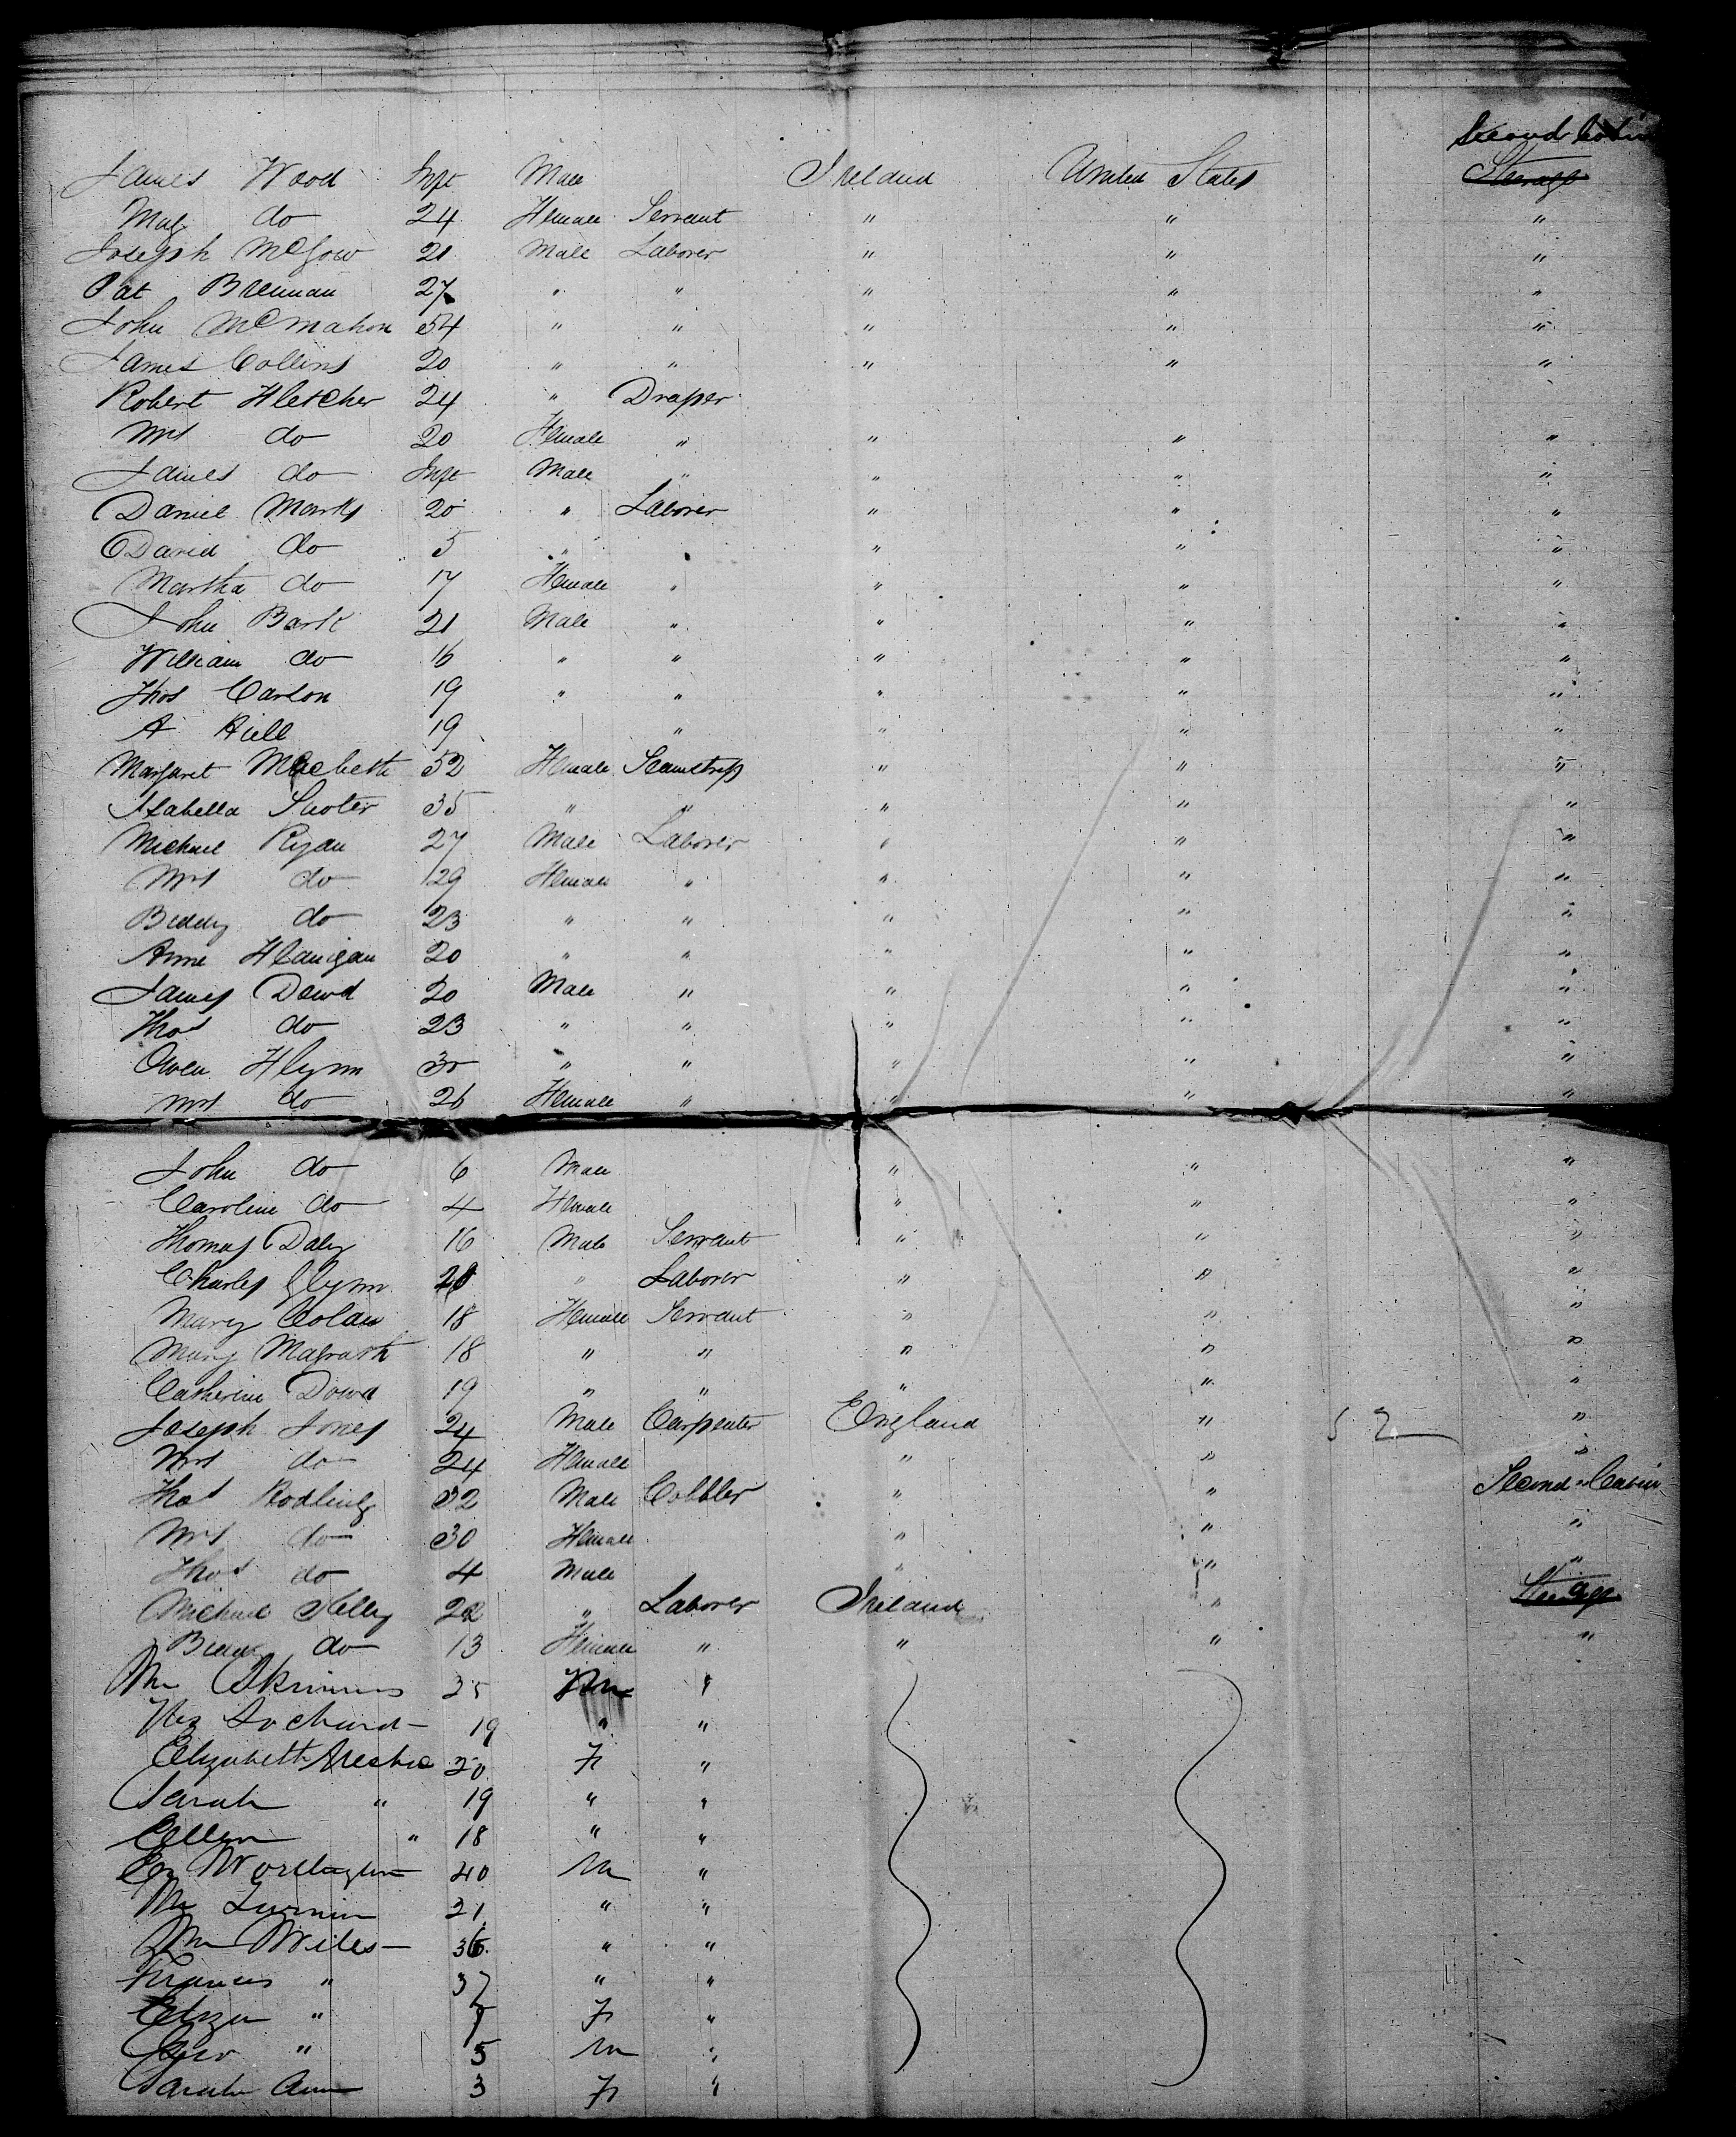 Second Cabin
James Wood Inft Male Ireland United States Steerage
Mag do 24 Female Servant " " "
Joseph McGow 21 Male Laborer " " "
Pat Brennan 27 " " " " "
John McMahon 54 " " " " "
James Collins 20 " " " " "
Robert Fletcher 24 " Draper
Mrs do 20 Female " " " "
James do Inft Male " " " "
Daniel Marks 20 " Laborer " " "
David do 5 " " " " "
Martha do 17 Female " " " "
John Bark 21 Male " " " "
William do 16 " " " " "
Thos Carson 19 " " " " "
A Hill 19 " " " "
Margaret Macbeth 52 Female Seamstress " " "
Isabella Suoter 35 " " " " "
Michael Ryan 27 Male Laborer " " "
Mrs do 29 Female " " " "
Biddy do 23 " " " " "
Anne Flanigan 20 " " " " "
James Dowd 20 Male " " " "
Thos do 23 " " " " "
Owen Flynn 30 " " " " "
Mrs do 26 Female " " " "
John do 6 Male " " "
Caroline do 4 Female " " "
Thomas Daly 16 Male Servant " " "
Charles Glynn 20 " Laborer " " "
Mary Colan 18 Female Servant " " "
Mary Magrath 18 " " " " "
Catherine Dowd 19 " " " " "
Joseph Jones 24 Male Carpenter England " 52 "
Mrs do 24 Female " " "
Thos Rodling 32 Male Cobbler " " Second Cabin
Mrs do 30 Female " " "
Thos do 4 Male " " "
Michael Kelly 22 " Laborer Ireland " Steerage
do 13 Female " " " "
Skrimins 25 "
Lochard 19 " "
Elizabeth 20 F "
Sarah " 19 " "
Ellen " 18 " "
Worthington 40 M "
21 " "
Wm Wiles 36 " "
Frances " 37 " "
Eliza " 7 F "
Geo " 5 M "
Sarah Ann 3 F "